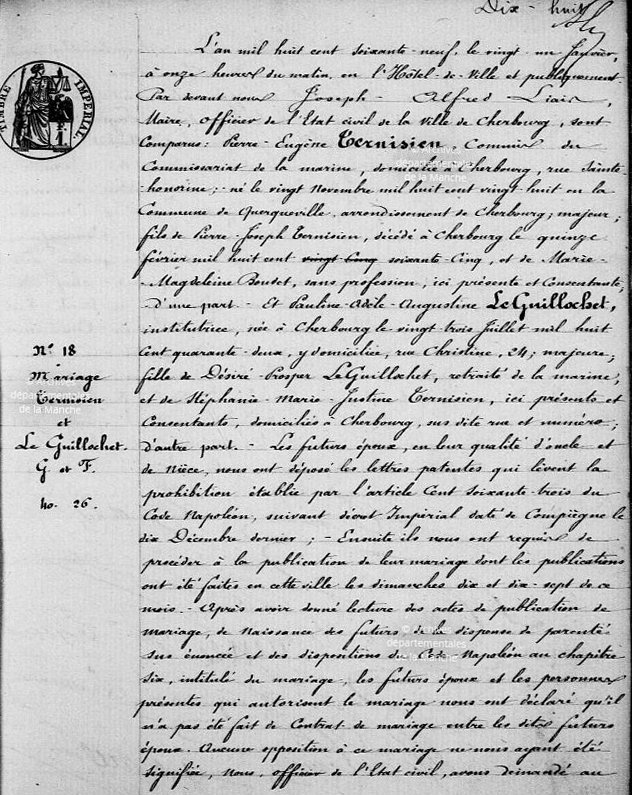 Dix-huit
L'an mil huit cent soixante-neuf, le vingt un Janvier,
à onze heures du matin, en l'Hôtel-de-Ville et publiquement.
Par devant nous Joseph-Alfred Liais,
Maire, officier de l'Etat civil de la ville de Cherbourg, sont
Comparus: Pierre-Eugène Ternisien, Commis du
Commissariat de la marine, domicilié à Cherbourg, rue Sainte
honorine; né le vingt Novembre mil huit cent vingt-huit en la
Commune de Querqueville, arrondissement de Cherbourg; majeur;
fils de Pierre-Joseph Ternisien, décédé à Cherbourg le quinze
février mil huit cent vingt cinq soixante-Cinq, et de Marie-
Magdeleine Boudet, sans profession, ici présente et Consentante;
D'une part - Et Pauline-Adèle-Augustine Le Guillochet,
institutrice, née à Cherbourg le vingt trois Juillet mil huit
Cent quarante-deux, y domiciliée, rue Christine, 24; majeure;
fille de Désiré-Prosper Le Guillochet, retraité de la marine,
et de Stéphanie-Marie-Justine Ternisien, ici présents et
Consentants, domiciliés à Cherbourg, sus dite rue et numéro;
d'autre part. - Les futurs époux, en leur qualité d'oncle et
de Nièce, nous ont déposé les lettres patentes qui lèvent la
prohibition établie par l'article Cent soixante-trois du
Code Napoléon, suivant décret Impérial daté de Compiègne le
dix Décembre dernier; - Ensuite ils nous ont requis de
procéder à la publication de leur mariage dont les publications
ont été faites en cette ville les dimanches dix et dix-sept de ce
mois. - Après avoir donné lecture des actes de publication de
mariage, de Naissance des futurs de la dispense de parenté
sus énoncée et des dispositions du Code Napoléon au chapitre
six, intitulé du mariage, les futurs époux et les personnes
présentes qui autorisent le mariage nous ont déclaré qu'il
n'a pas été fait de Contrat de mariage entre les dits futurs
époux. Aucune opposition à ce mariage ne nous ayant été
signifiée, Nous, officier de l'Etat civil, avons demandé au
TIMBRE IMPERIAL
N° 18
Mariage
Ternisien
et
Le Guillochet.
G. et F.
ho. 26.
© Archives
départementales
de la Manche
© Archives
départementales
de la Manche
© Archives
départementales
de la Manche